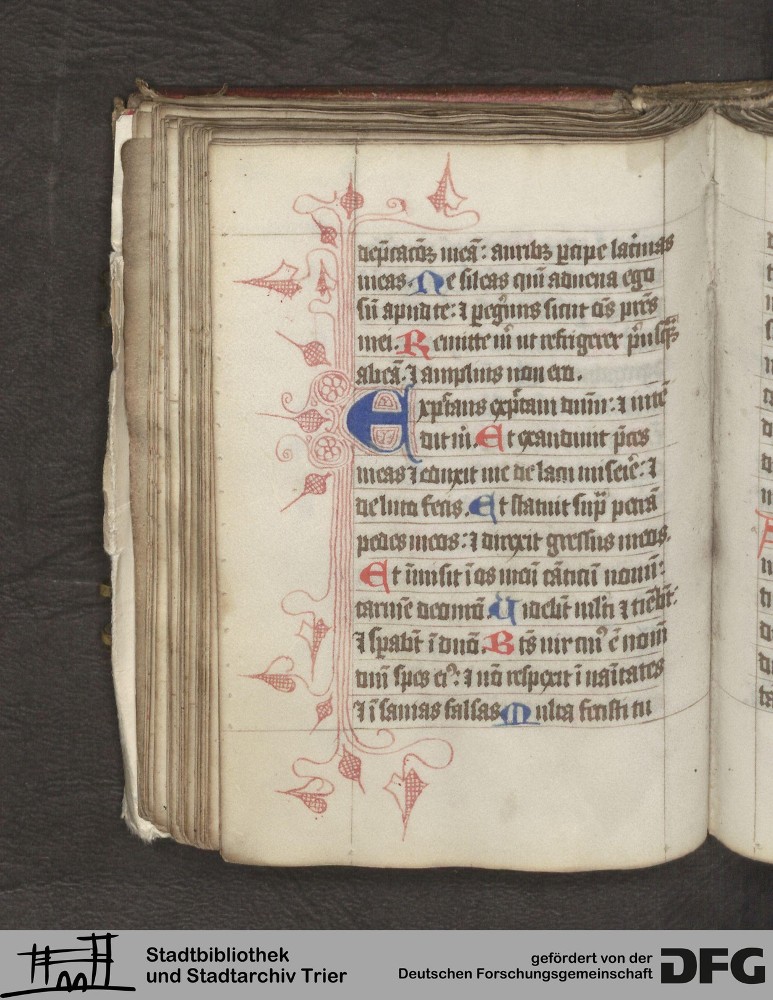 dep̄catōꝫ meā: aurib; ꝑcipe lac̄mas
meas. Ne sileas qm̄ aduena ego
sū apud te: ⁊ pegͥnus sicut oēs pr̄es
mei. Remitte m̄ ut refrigerer pͥusqͣꝫ
abeā: ⁊ amplius non ero.
Expc̄tans exp̄ctaui dnm̄: ⁊ intē
dit m̄. Et exaudiuit p̄ces
meas ⁊ eduxit me de lacu miserie: ⁊
de luto fecis. Et statuit sup̄ petrā
pedes meos: ⁊ direxit gressus meos.
Et īmisit ī os meū cāticū nouū:
carmē deo nrō. Uidebt̄ mlti ⁊ tiēbt̄:
⁊ sꝑabt̄ ī dnō. Bt̄s uir cuiꝰ ē nom̄
dnī spes eiꝰ: ⁊ nō respexit ī uaitates
⁊ īsanias falsas Multa fecisti tu
Stadtbibliothek
und Stadtarchiv Trier
gefördert von der
Deutschen Forschungsgemeinschaft
DFG